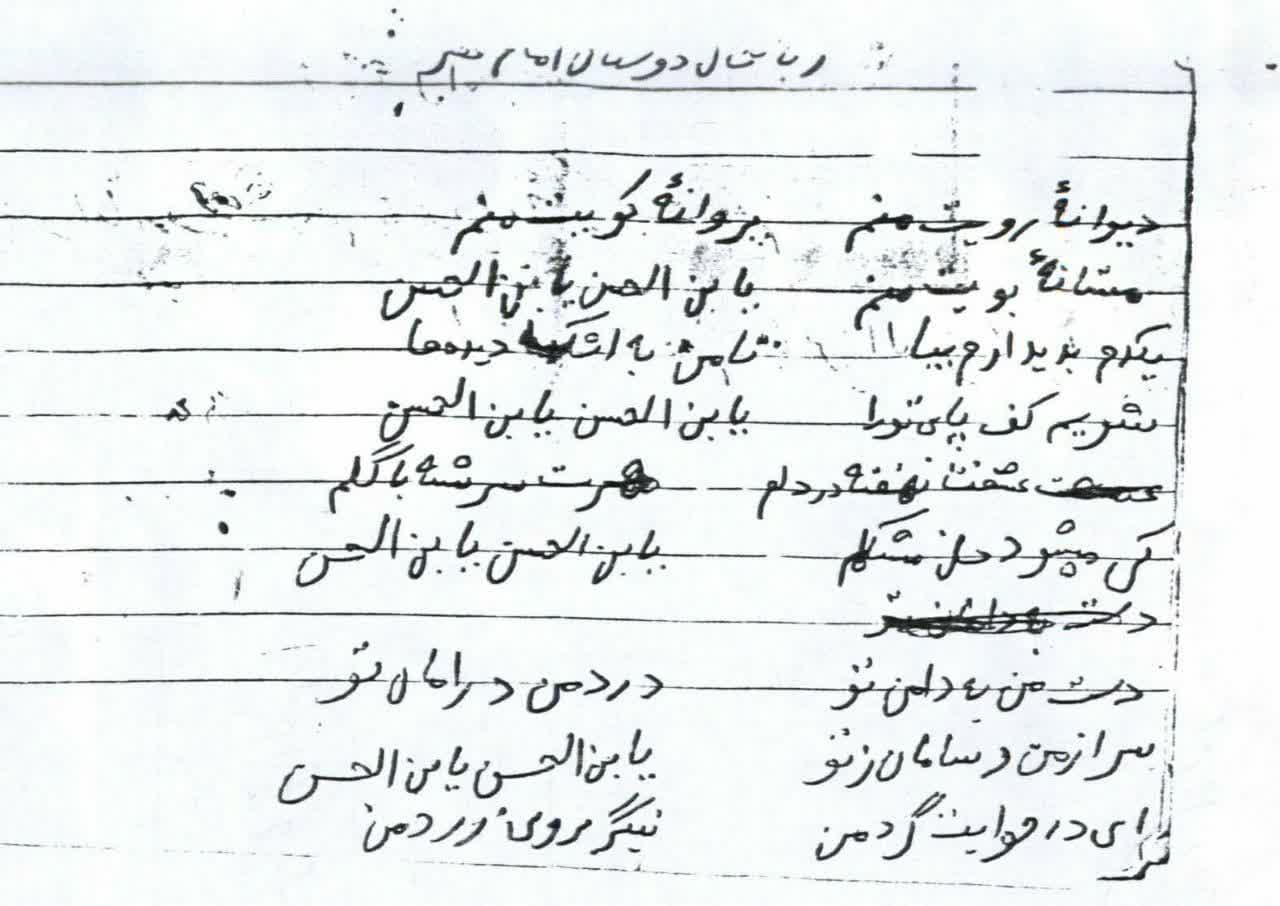 دوستان امام
دیوانهٔ رویت منم پروانهٔ کویت منم
مستانهٔ بویت منم یابن الحسن یابن الحسن
یکدم بدیدارم بیا تا من به اشک دیده‌ها
شویم کف پای تورا یابن الحسن یابن الحسن
عشقت نهفته در دلم مهرت سرشته با گلم
کی میشود حل مشکلم یابن الحسن یابن الحسن
دست
دست من به دامن تو درد من درمان تو
سر از من و سامان ز تو یابن الحسن یابن الحسن
ای در هوایت گرد من روی زرد من